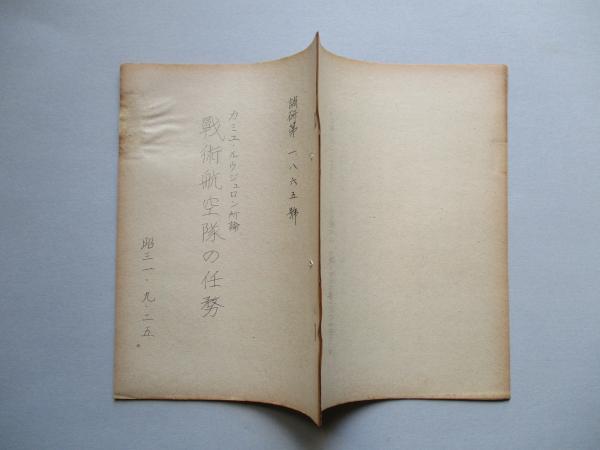 調研第一八六五號
カミユ・ルウジュロン所論
戰術航空隊の任務
昭三一・九・二五。